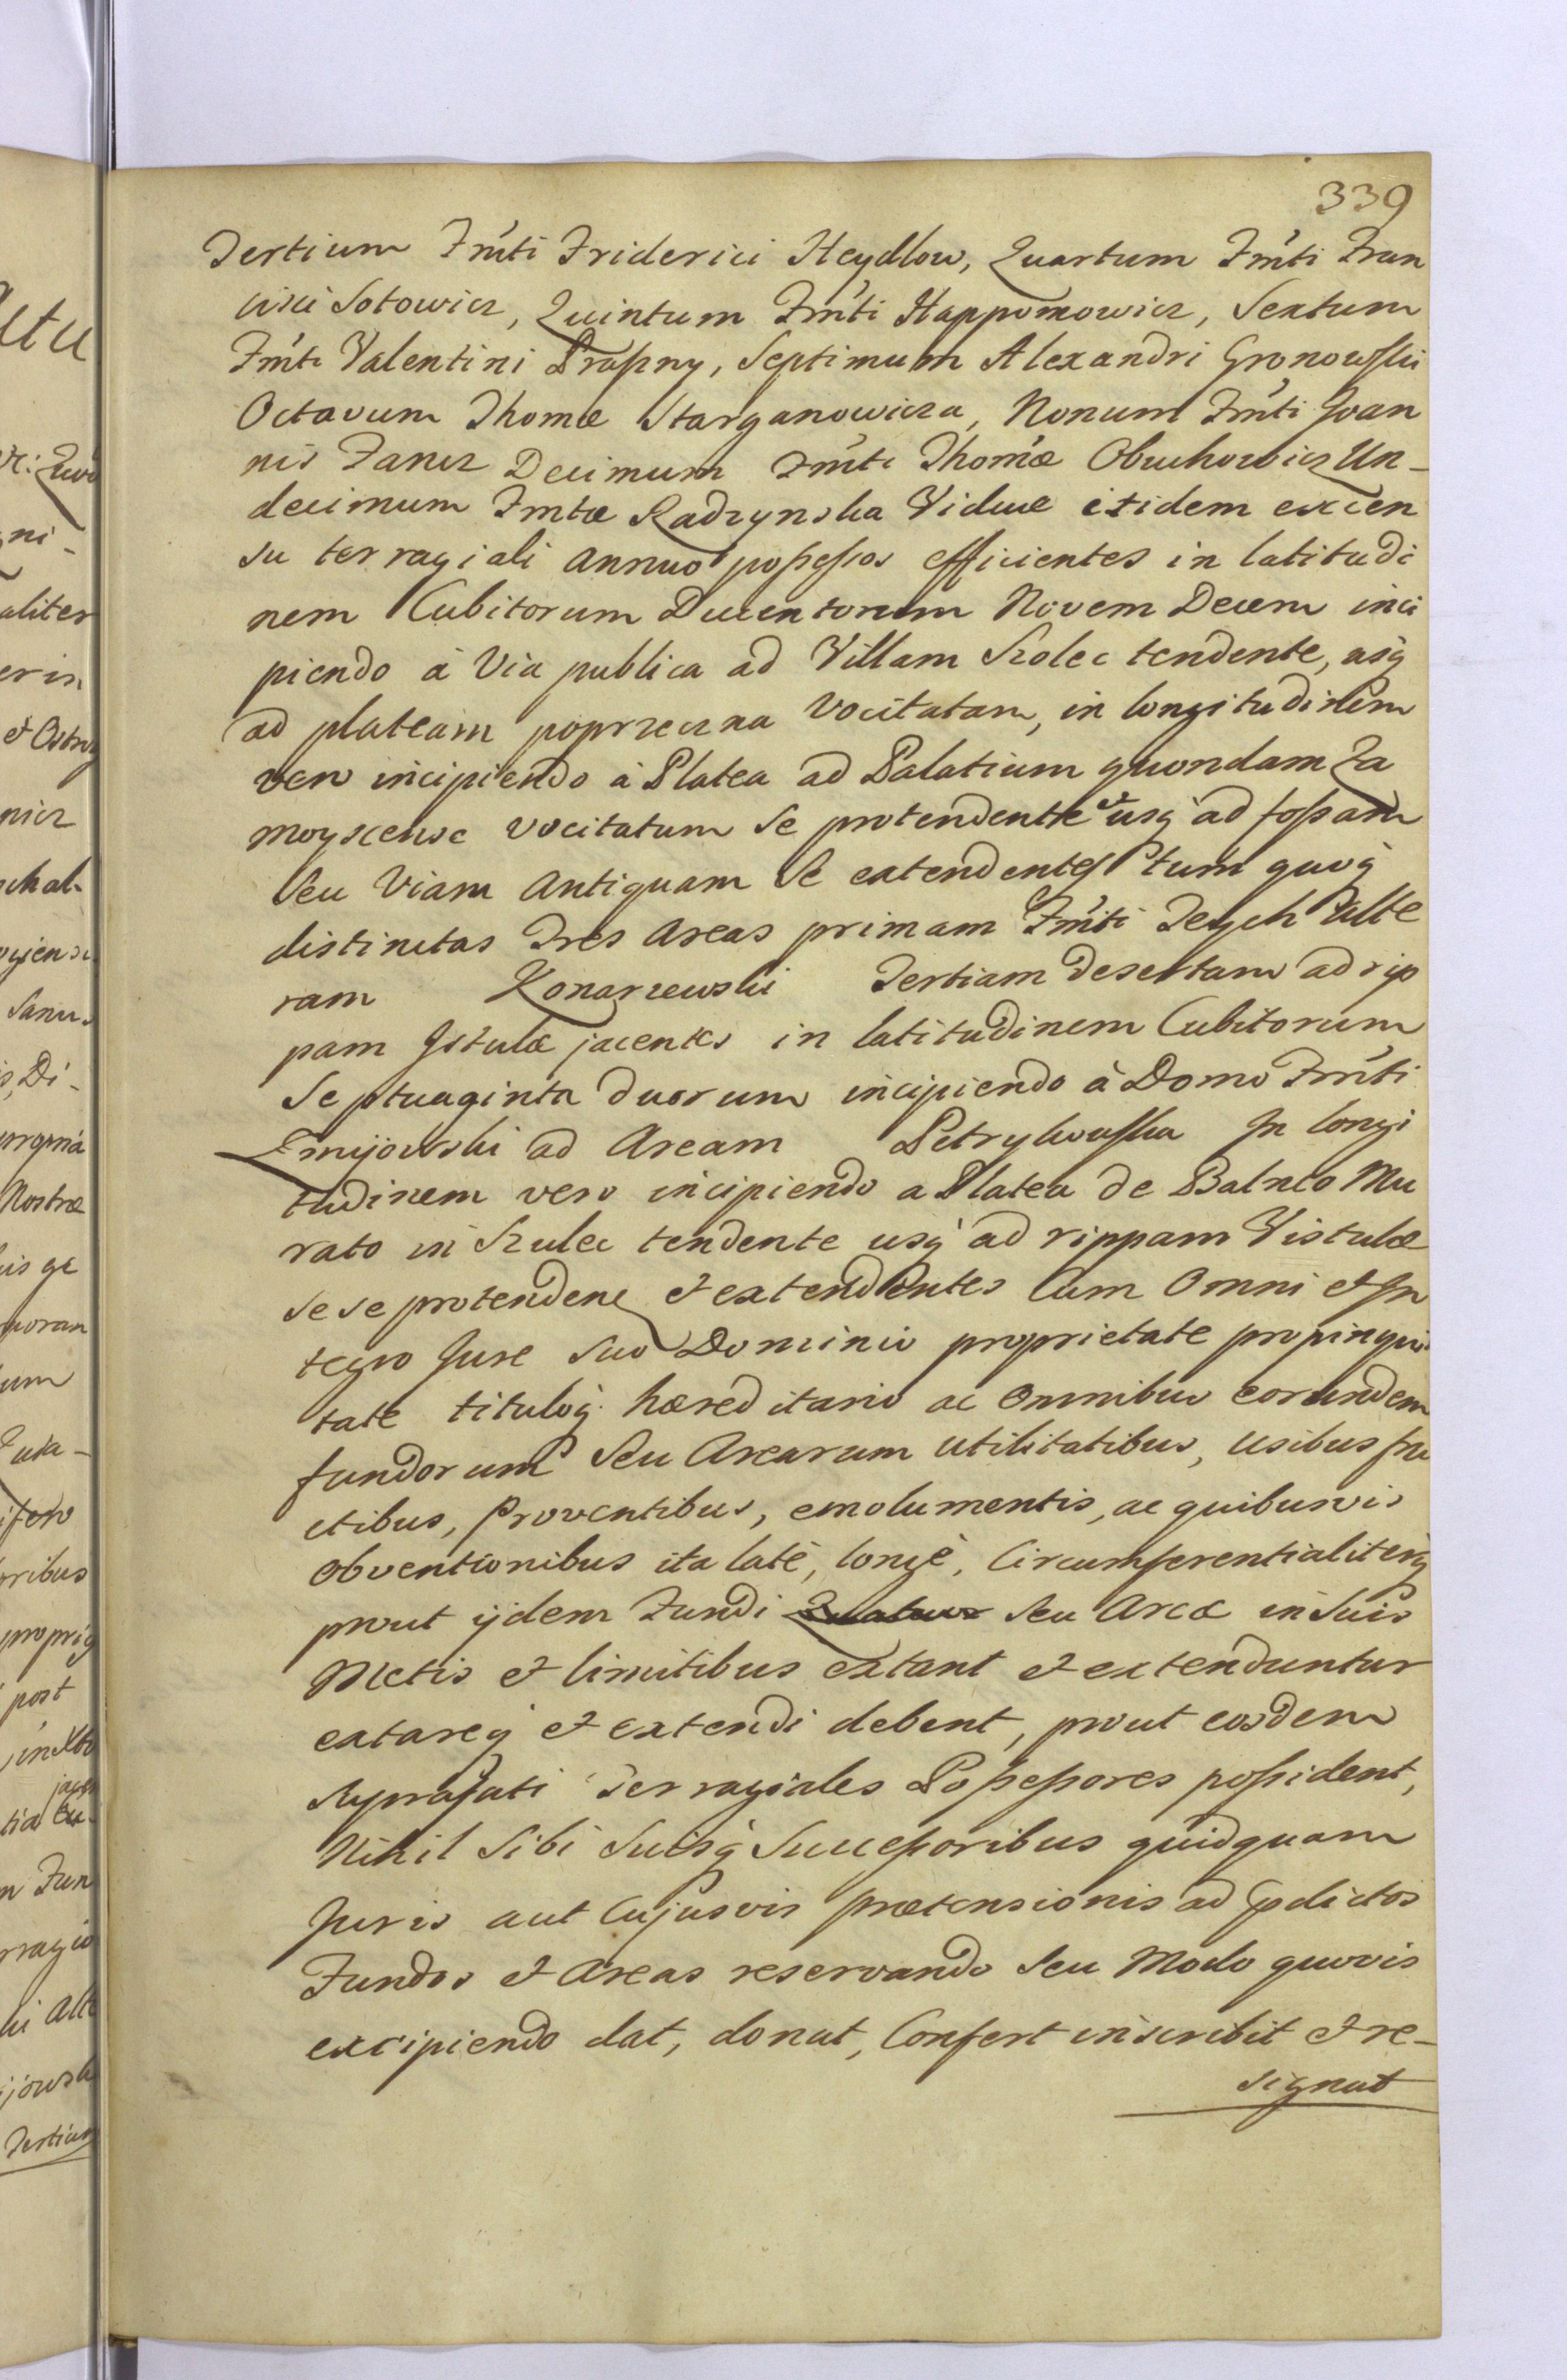 339
Tertium Fm̃ti Friderici Heydlow, Quartum Fm̃ti Fran
cisci Sotowicz, Quintum Fm̃ti Happomowicz, Sextum
Fm̃ti Valentini Praſsny, Septimum Alexandri Gronowſki
Octavum Thomæ Starganowicza, Nonum Fm̃ti Joan
nis Fancz Decimum Fm̃ti Thomæ Obuchowicz Un-
decimum Fmtæ Radzynska Viduæ itidem ex cen
su terragiali annuo poſseſsos efficientes in latitudi
nem Cubitorum Ducentorum Novem Decem inci
piendo à Via publica ad Villam Szolec tendente, usq̃
ad plateam poprzeczna vocitatam, in longitudinem
vero incipiendo à Platea ad Palatium quondam Za
moyscense vocitatum se protendente et usq̃ ad foſsam
seu Viam antiquam se extendentes tum quoq̃
distinctas Tres Areas primam Fm̃ti Teych Alte
ram Konarzewski Tertiam desertam ad rip
pam Istulæ jacentes in latitudinem Cubitorum
Septuaginta duorum incipiendo à Domo Fm̃ti
Zmijowski ad Aream Petrykowſka In longi
tudinem vero incipiendo a Platea de Balneo Mu
rato in Szulec tendente usq̃ ad rippam Vistulæ
sese protenden et extendentes Cum Omni et In
tegro Jure suo Dominio proprietate propinqui
tate tituloq̃ hæreditario ac omnibus eorundem
fundorum seu Arearum utilitatibus, usibus fru
ctibus, Proventibus, emolumentis, ac quibusvis
obventionibus ita latè, longè, Circumferentialiterq̃
prout ijdem Fundi seu Areæ in suis
Metis et limitibus extant et extenduntur
extareq̃ et extendi debent, prout eosdem
supraſati Terragiales Poſseſsores poſsident,
Nihil sibi suisq̃ Succeſsoribus quidquam
Juris aut Cujusvis prætensionis ad p̃dictos
Fundos et Areas reservando seu Modo quovis
excipiendo dat, donat, Confert inscribit et re-
signat